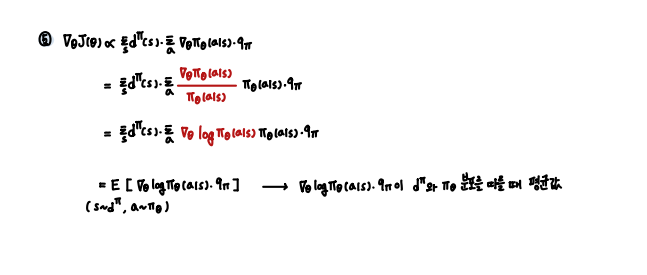 ⑤ ∇θJ(θ) ∝ Σs dπ(s)·Σa ∇θπθ(a|s)·qπ
= Σs dπ(s)·Σa ∇θπθ(a|s) / πθ(a|s) πθ(a|s)·qπ
= Σs dπ(s)·Σa ∇θ log πθ(a|s) πθ(a|s)·qπ
= E [ ∇θ log πθ(a|s)·qπ ] → ∇θ log πθ(a|s)·qπ이 dπ와 πθ 분포를 따를 때 평균값
(s~dπ, a~πθ)